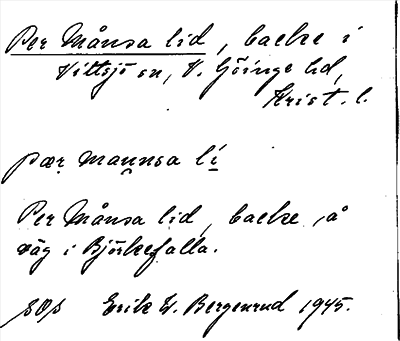 Per Månsa lid, backe i
Vittsjö sn, V. Göinge hd,
Krist. l.
pær mau̯nsa lí
Per Månsa lid, backe å
väg i Björkefalla.
SOS Erik W. Bergenrud 1945.